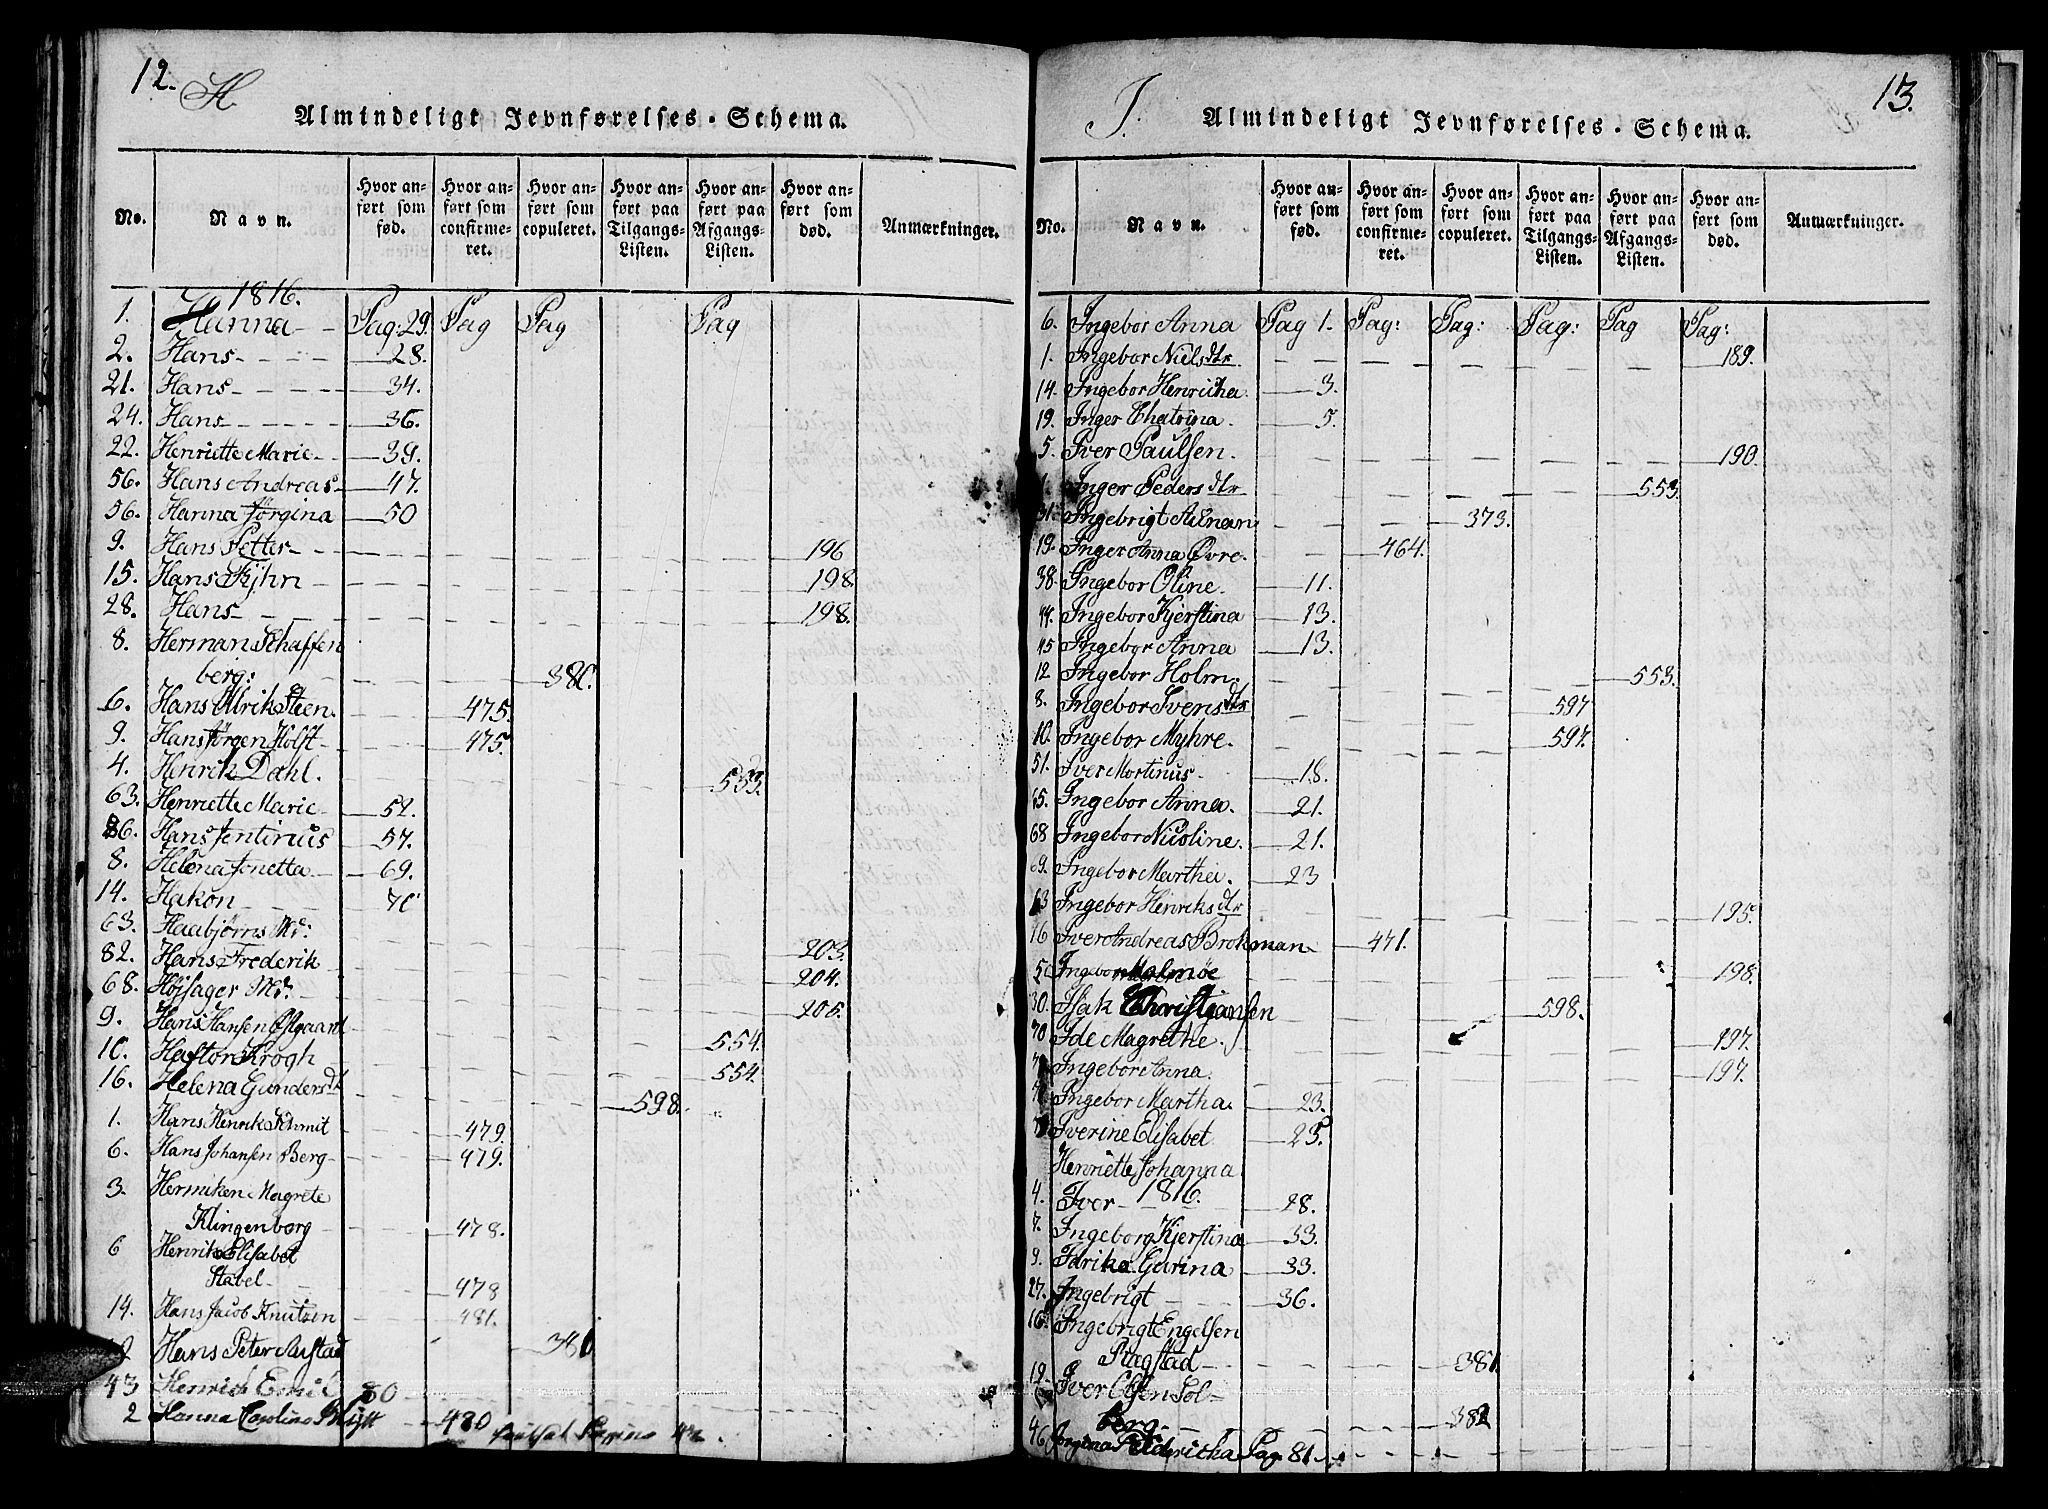 12. H.
Almindeligt Jevnførelses-Schema.
No. Navn. Hvor anført som fød. Hvor anført som confirmeret. Hvor anført som copuleret. Hvor anført paa Tilgangs-Listen. Hvor anført paa Afgangs-Listen. Hvor anført som død. Anmærkninger.
1816.
1. Hanna Pag: 29. Pag Pag Pag
2. Hans 28.
21. Hans 34.
24. Hans 36.
22. Henriette Marie 39.
56. Hans Andreas 47.
56. Hanna Jørgina 50
9. Hans Petter 196
15. Hans 198.
28. Hans 198.
8. Herman Schaffen
berg:
6. Hans Ulrik Steen. 475.
9. Hans Jørgen Holst 475.
4. Henrik Dahl. 553.
63. Henriette Marie 52.
86. Hans Jentinus 57.
8. Helena Jonetta 69.
14. Hakon 70
63. Haabjørns Md: 203.
82. Hans Frederik 204.
68. Højsager Md: 205.
9. Hans Hansen Østgaard 554.
10. Hastor Krogh 554.
16. Helena Gundersdtr 598.
1. Hans Henrik Schmit 479.
6. Hans Johansen Berg 479.
3. Hermiken Magrete
Klingenberg 478.
6 Henrika Elisabet
Stabel 478
14. Hans Jacob Knutsen 481.
Hans Peter Austad
43 Henrich Emil 80
2 Hanna Carolina 480
13.
I. Almindeligt Jevnførelses-Schema.
No. Navn. Hvor anført som fød. Hvor anført som confirmeret. Hvor anført som copuleret. Hvor anført paa Tilgangs-Listen. Hvor anført paa Afgangs-Listen. Hvor anført som død. Anmærkninger.
6. Ingebor Anna Pag 1. Pag: Pag: Pag: Pag Pag:
1. Ingebor Nielsdtr 189.
14. Ingebor Henricha 3.
19. Inger Chatrina 5.
5. Iver Paulsen. 190.
1. Inger Pedersdtr 553.
31. Ingebrigt 373.
19. Inger Anna Øvre 464.
38. Ingebor Oline 11.
44. Ingebor Kjerstina 13.
45 Ingebor Anna 13.
12 Ingebor Holm: 553.
8. Ingebor Ivensdtr 597
10. Ingebor Myhre. 597.
51. Iver Mortinus 18.
65. Ingebor Anna. 21.
68 Ingebor Nicoline. 21.
69. Ingebor Martha. 23
13 Ingebor Henriksdtr 195.
16 Iver Andreas Brokman 471.
5 Ingebor Malmøe 198.
30. Isak Christiansen 598.
70 Ide Magrethe. 197.
Ingebor Anna 197.
Ingebor Martha. 23.
Iverine Elisabet 25.
Henriette Johanna
4. Iver 1816. 28.
7. Ingeborg Kjerstina 33.
9. Idrika Gurina 33.
27. Ingebrigt 36.
16. Ingebrigt Engelsen
Ragstad 381.
12. Iver Olsen Sol-
berg 382
46 Jorgina Pag. 81.